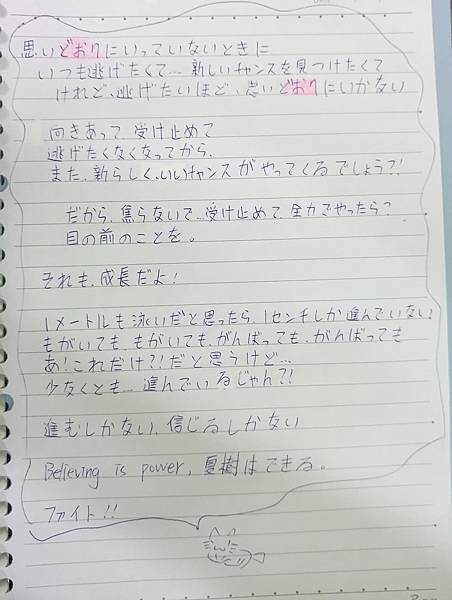 思いどおりにいっていないときに
いつも逃げたくて…新しいチャンスを見つけたくて
けれど、逃げたいほど、思いどおりにいかない
向きあって受け止めて
逃げたくなくなってから、
また、新らしく、いいチャンスがやってくるでしょう?!
だから、焦らないで、受け止めて全力でやったら?
目の前のことを。
それも、成長だよ!
1メートルも泳いだと思ったら、1センチしか進んでいない!
もがいても、もがいても、がんばっても、がんばっても
あ!これだけ?!だと思うけど…
少なくとも…進んでいるじゃん?!
進むしかない、信じるしかない
Believing is power, 夏樹はできる。
ファイト!!